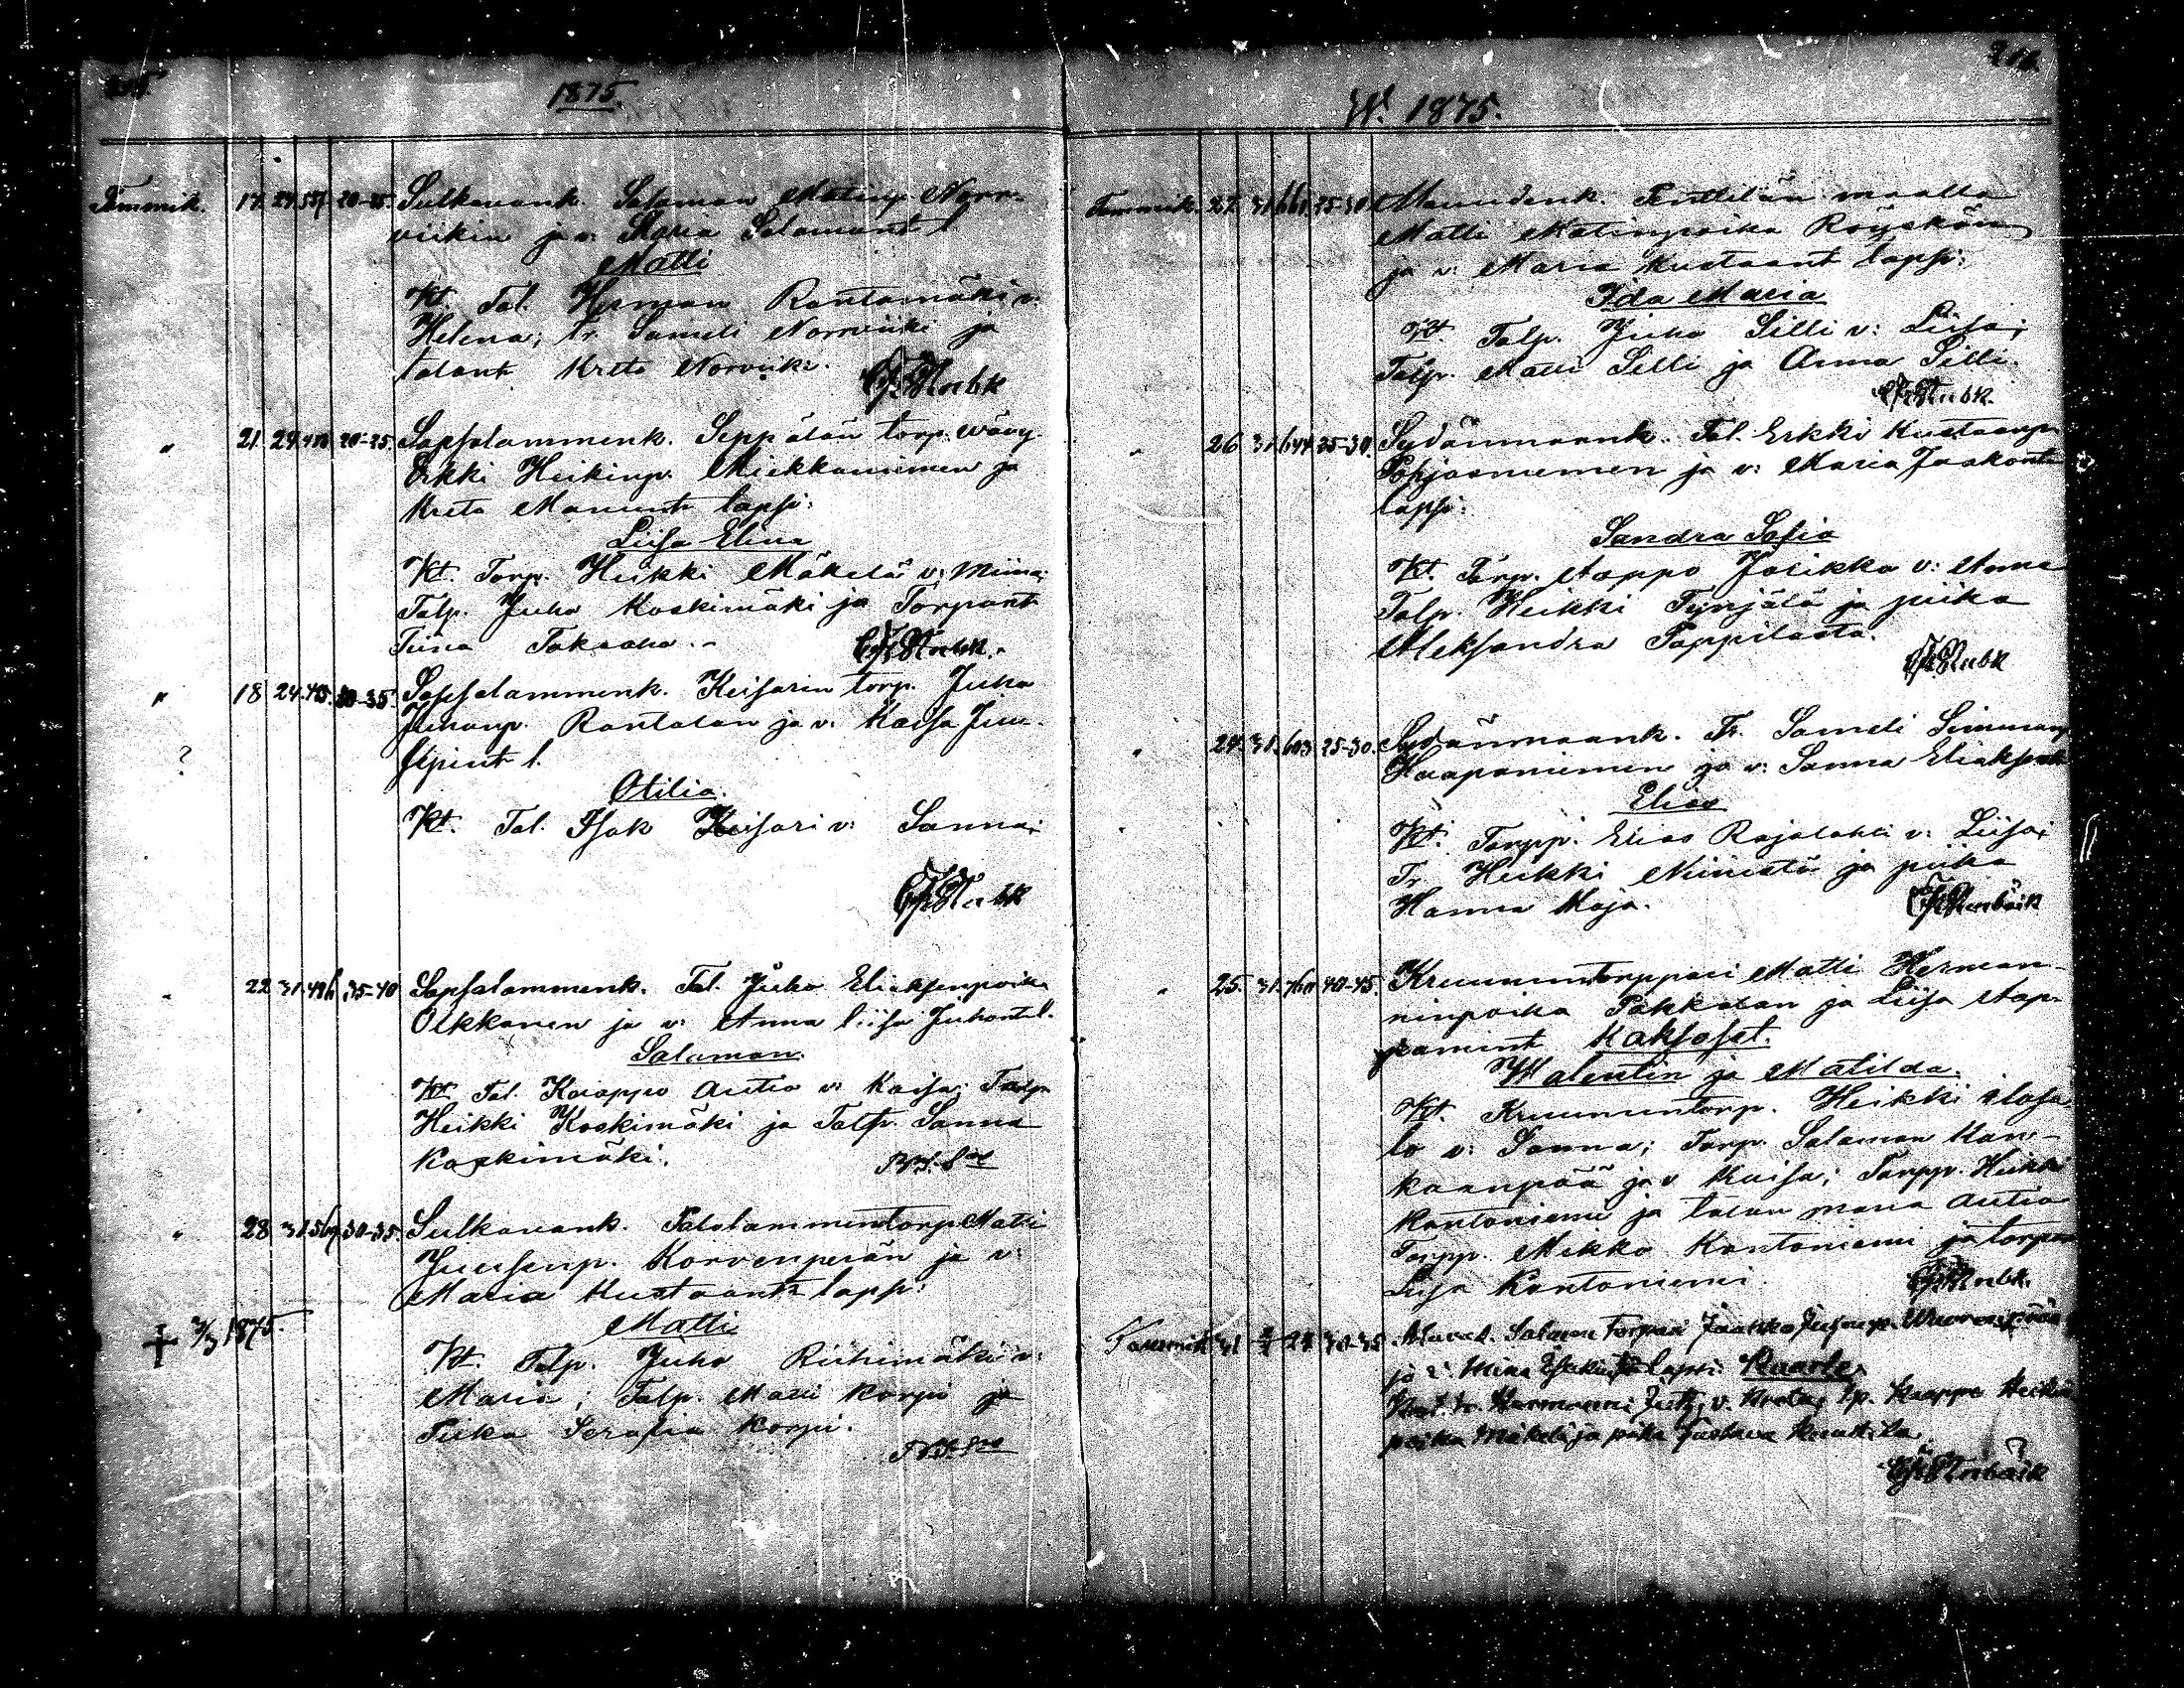 1875.
Tammik. 17. 24. 557 20-25. Sulkavank. Salaman Matinp. Norr-
viikin ja v: Maria Salamant l
Matti
Kt. Tal. Herman Rantamäki v:
Helena; Tr. Sameli Norrviiki ja
talont Kreta Norviiki.
" 21. 24. 20-25. Lapsalammenk. Seppälän torp. wävy
Erkki Heikinp. Miekkaniemen ja
Kreta Manuent lapsi:
Liisa Elina
Kt. Torp. Heikki Mäkelä v: Miina;
Talp. Juha Koskimäki ja Torpant
Tiina Taksaha.-
" 18 24. 30-35. Lapsalammenk. Keisarin torp. Juha
Juhanp. Rantalan ja v. Kaisa Juu-
sepint l.
?
Otilia.
Kt. Tal. Isak Keisari v: Sanna;
" 22 31. 496 35-40 Lapsalammenk. Tal. Juha Eliaksenpoika
Olkkonen ja v: Anna Liisa Juhont l.
Salaman.
Kt. Tal. Kaappo Autio v: Kaisa; Talp.
Heikki Koskimäki ja Talp. Sanna
Koskimäki.
" 28 31. 567 30-35. Sulkavank. Patalammen torp. Matti
Juusenp. Korvenperän ja v:
Maria Kustaant lapsi:
+ 3/3 1875.
Matti
Kt. Talp. Juha Riihimäki v:
Maria; Talp. Matti Korpi ja
Piika Serafia Korpi.
W. 1875.
Tammik. 27. 31. 661 25-30. Penttilän maalla
Matti Matinpoika Röyskön
ja v: Maria Kustaant lapsi:
Ida Maria
Kt. Talp. Juha Silli v: Liisa;
Talp. Matti Silli ja Anna Silli.
" 26 31. 644 25-30. Sydänmaank. Tal. Erkki Kustaanp.
Pohjasniemen ja v: Maria Jaakont
lapsi:
Sandra Sofia
Kt. Torp. Aappo Josikka v: Anna
Talp. Heikki Tynjälä ja piika
Aleksandra Pappilasta.
" 24. 31. 603 25-30. Sydänmaank. Tr. Sameli Simmanp
Haapaniemen ja v: Sanna Eliaksent
Elias
Kt. Torpp. Elias Rajalahti v: Liisa;
Tr. Heikki Niinistö ja piika
Hanna Maja.
" 25. 31. 760 40-45. Kruunun torppari Matti Herman-
ninpoika Pakkalan ja Liisa Aap-
pamint Kaksoset.
Walentin ja Matilda.
Kt. Kruununtorp. Heikki Alasa
lo v: Sanna; Torp. Salaman Kan-
kaanpää ja v Kaisa; Torpp. Heikki
Kontoniemi ja talon Maria Autio
Torpp. Mikko Kontoniemi ja torpan
Liisa Kontoniemi.
Tammik 31 30-35 Salamen torpari Jaakko
ja v: Miina lapsi: Kaarle
v. Kreta; tp. Kaappo Heikin
poika Mäkelä ja piika Justava